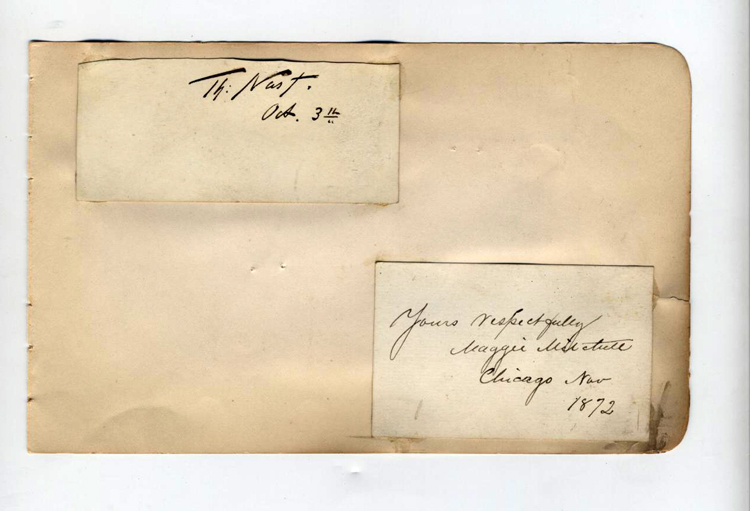 Th: Nast.
Oct. 3th
Yours respectfully
Maggie Mitchell
Chicago Nov
1872